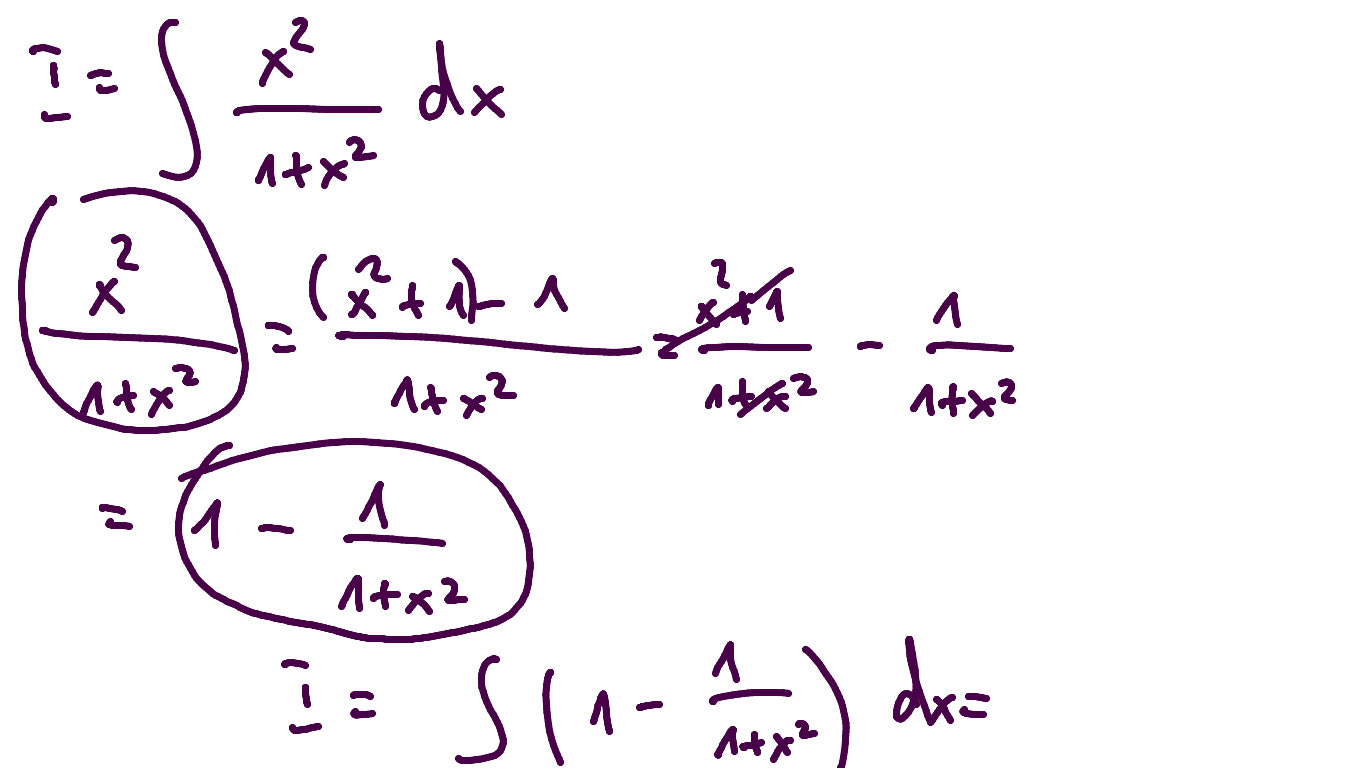 I = ∫ x²/(1+x²) dx
x²/(1+x²) = ((x²+1)-1)/(1+x²) = (x²+1)/(1+x²) - 1/(1+x²)
= 1 - 1/(1+x²)
I = ∫(1 - 1/(1+x²)) dx=